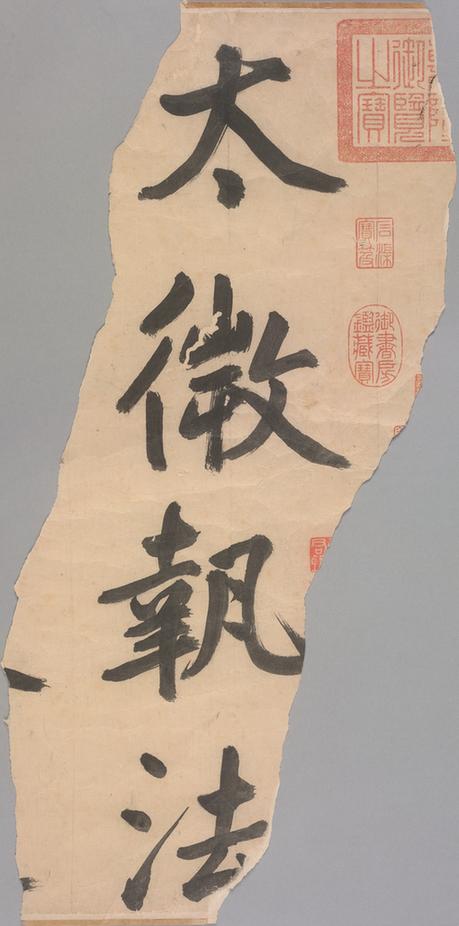 太微執法
御覽之寶
石渠寶笈
御書房鑑藏寶